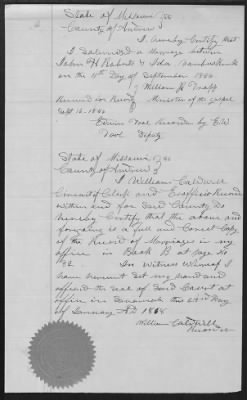 State of Missouri } SS
County of Andrew
I hereby Certify that
I Solemnized a Marriage between
John H Roberts & Ida
on the 11th Day of September 1880
William H Trapp
Received for Record Minister of the Gospel
Sept 15. 1880
Edwin Noel Recorder by E.W.
Noel Deputy
State of Missouri } SS
County of Andrew
I William Caldwell
Circuit Clerk and Exofficio Recorder
within and for said County Do
hereby Certify that the above and
foregoing is a full and Correct Copy
of the Record of Marriages in my
office in Book B at Page No
In Witness Whereof I
have hereunto set my hand and
affixed the seal of Said Court at
office in Savannah this Day
of January A.D.
William Caldwell
Recorder